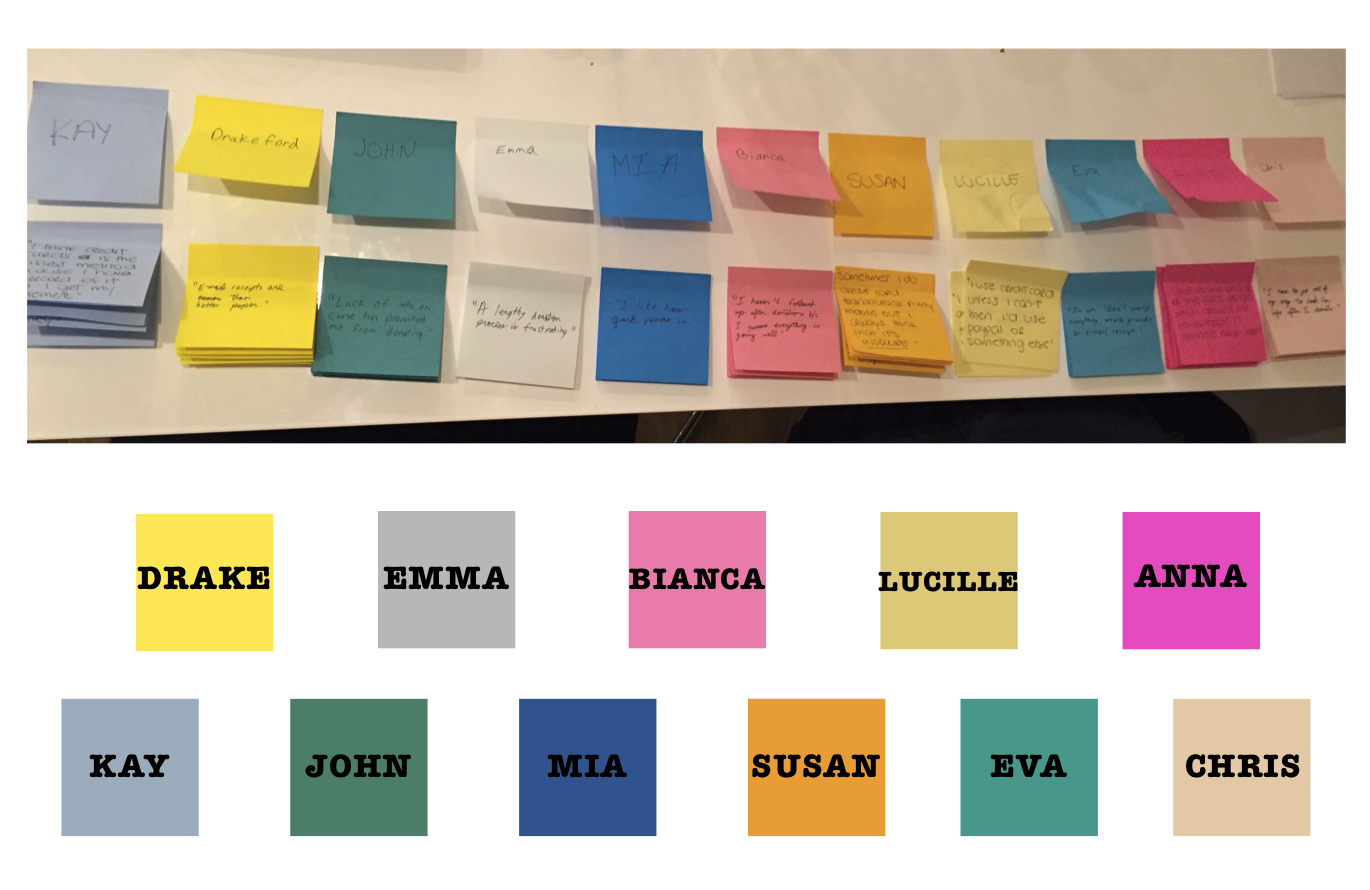 KAY
Drake Ford
JOHN
Emma
MIA
Bianca
SUSAN
LUCILLE
Eva
Chris
"I think credit
cards is the
easiest method
cause I have
record of it
I get my
"Email receipts are
than
better paper"
"Lack of info on
cause has prevented
me from donating"
"A lengthy donation
process is frustrating"
"I like how
quick venmo is"
"I haven't followed
up after donations b/c
I assume everything is
going well"
"Sometimes I do
credit card
transactions on my
mobile but I
always think
that it's
insecure"
"I use credit card
unless I can't
then I'd use
paypal or
something else"
"In an ideal world
everything would provide
an email receipt"
"I have to go out of
my way to look for
info after I donate"
DRAKE
EMMA
BIANCA
LUCILLE
ANNA
KAY
JOHN
MIA
SUSAN
EVA
CHRIS